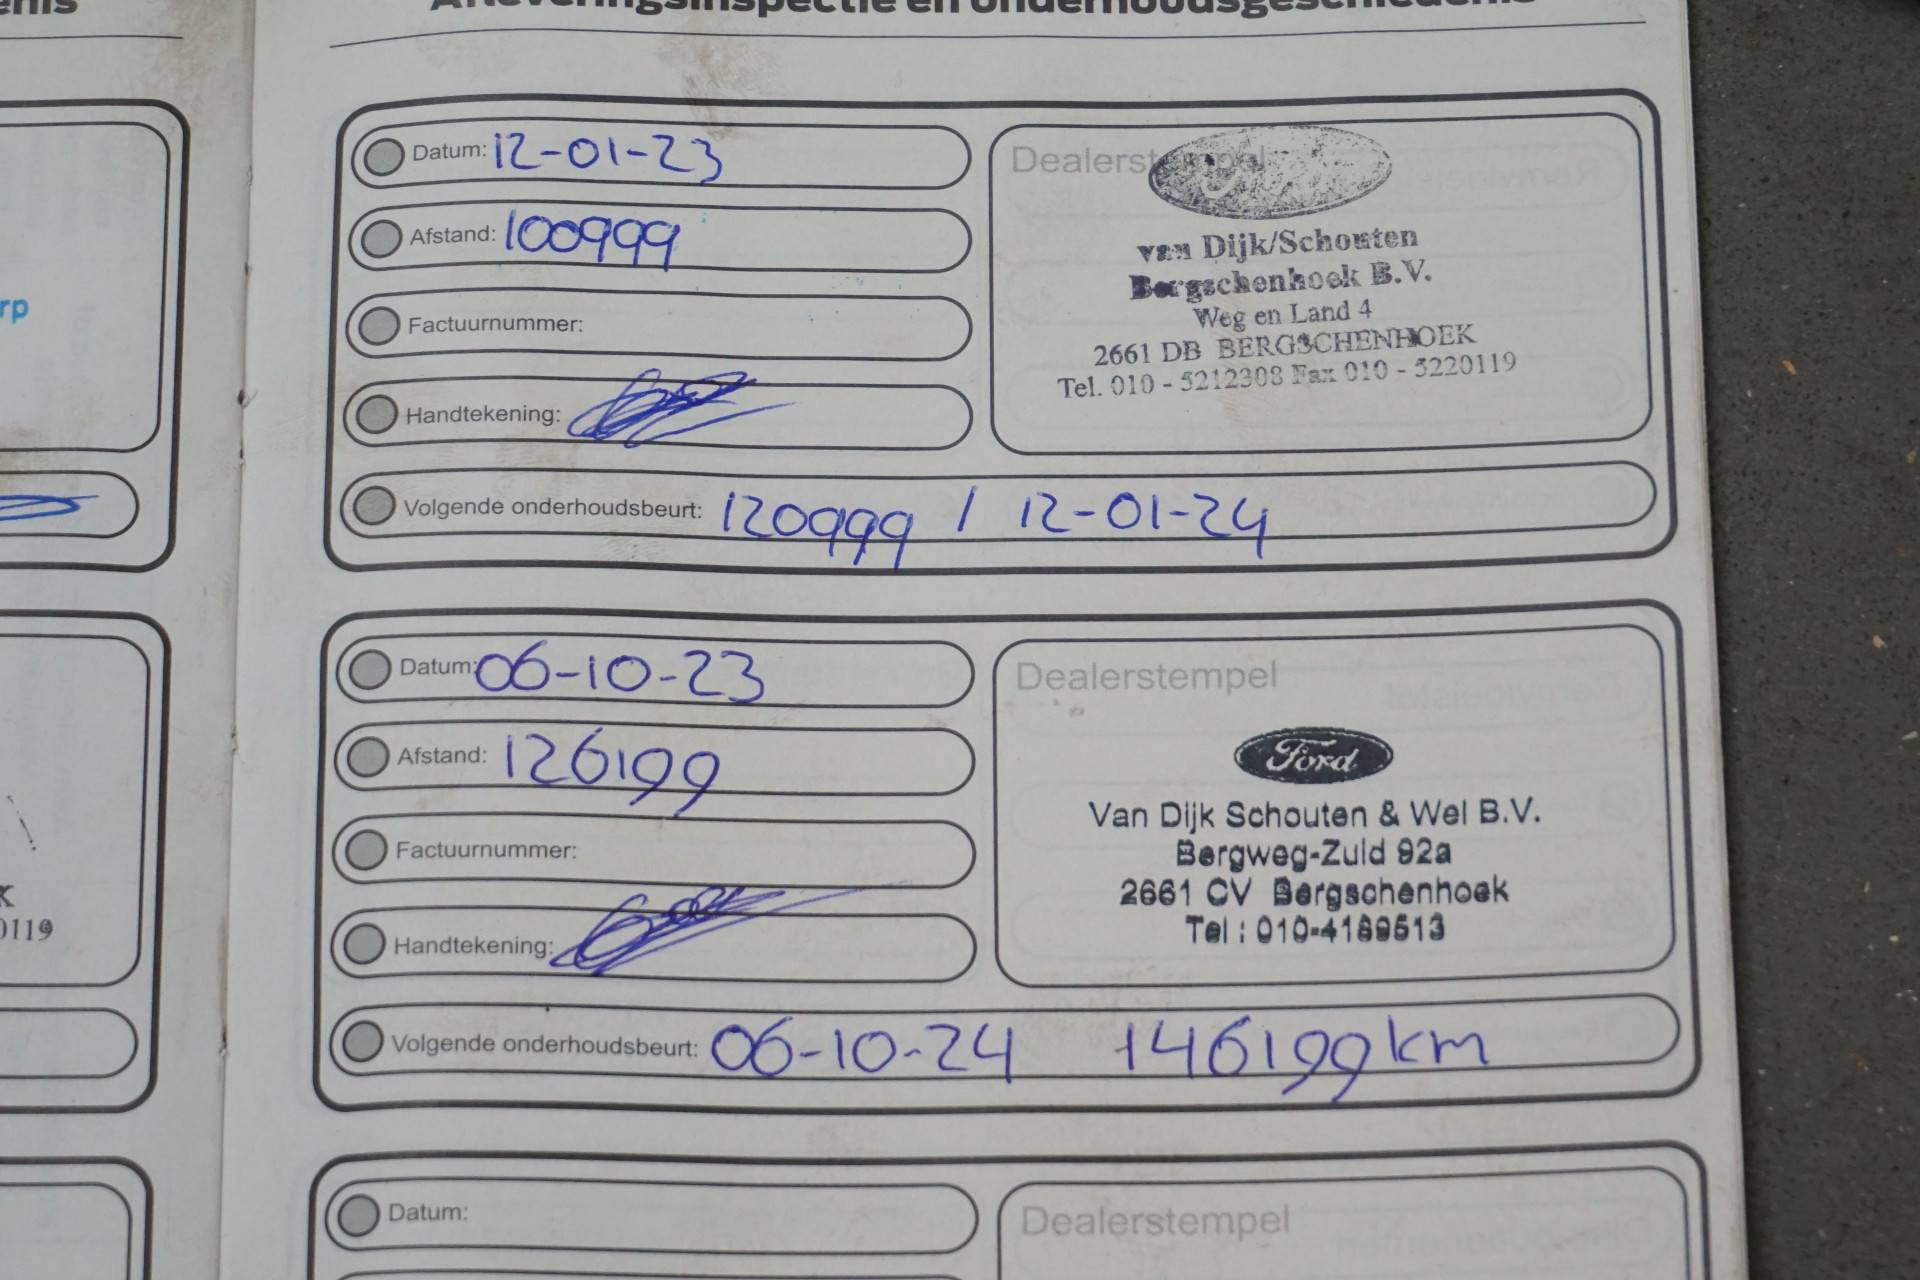 Afleveringsinspectie en onderhoudsgeschiedenis
Datum: 12-01-23
Afstand: 100999
Factuurnummer:
Handtekening:
Volgende onderhoudsbeurt: 120999 / 12-01-24
Dealerstempel
van Dijk/Schouten
Bergschenhoek B.V.
Weg en Land 4
2661 DB BERGSCHENHOEK
Tel. 010 - 5212308 Fax 010 - 5220119
Datum: 06-10-23
Afstand: 126199
Factuurnummer:
Handtekening:
Volgende onderhoudsbeurt: 06-10-24 146199 km
Dealerstempel
Ford
Van Dijk Schouten & Wel B.V.
Bergweg-Zuid 92a
2661 CV Bergschenhoek
Tel : 010-4189513
Datum:
Dealerstempel
rp
K
0119